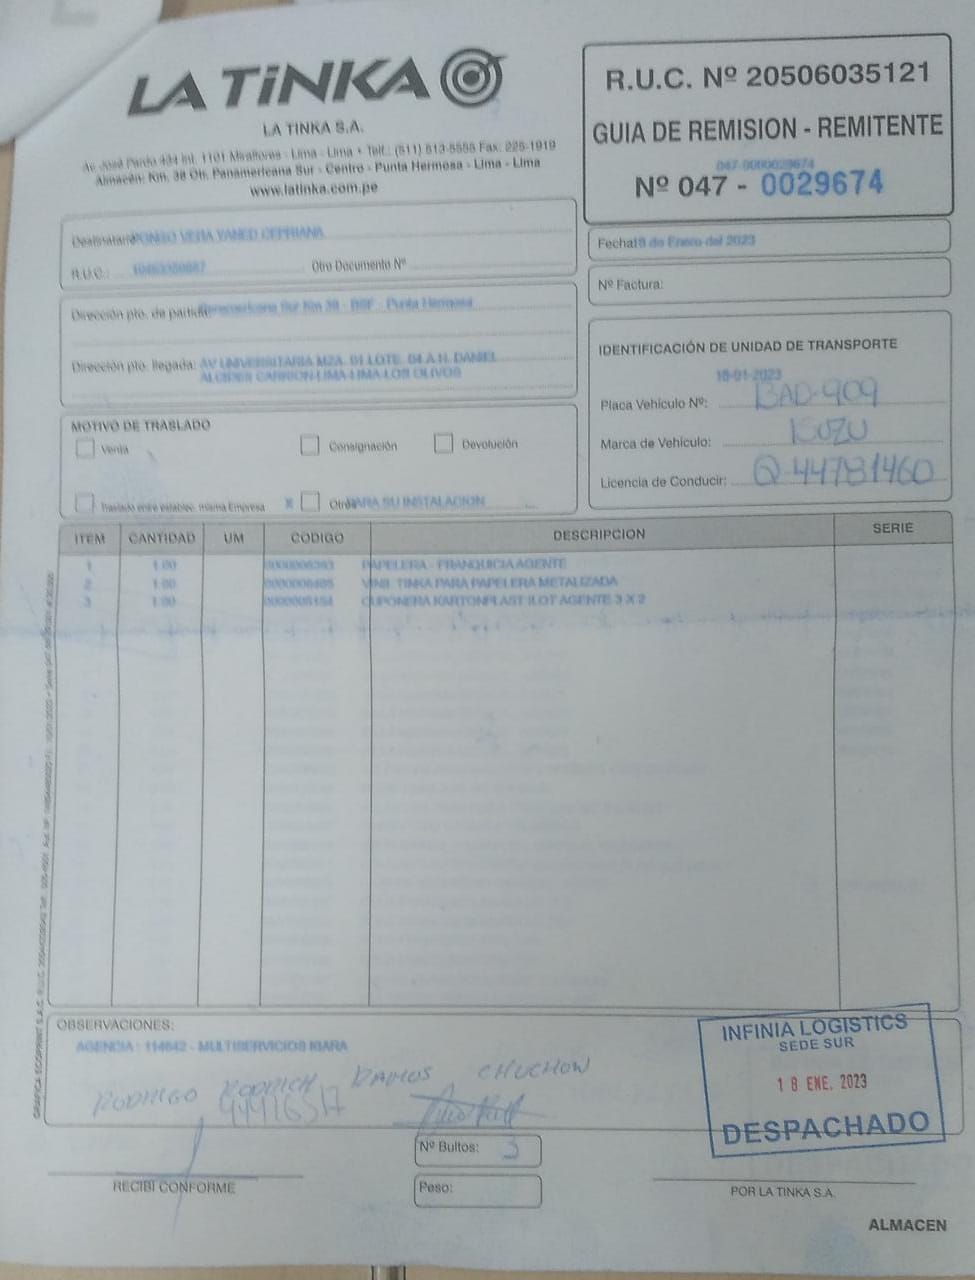 LA TiNKA
LA TINKA S.A.
Av. José Pardo 434 Int. 1101 Miraflores - Lima - Lima • Telf.: (511) 513-5555 Fax: 225-1919
Almacén: Km. 38 Panamericana Sur - Centro - Punta Hermosa - Lima - Lima
www.latinka.com.pe
R.U.C. Nº 20506035121
GUIA DE REMISION - REMITENTE
047-0000029674
Nº 047 - 0029674
Destinatario VERA YANED CEPRIANA
R.U.C.: Otro Documento Nº
Fecha: 18 de Enero del 2023
Nº Factura:
Dirección pto. de partida Sur Km 38 - Punta Hermosa
Dirección pto. llegada: AV UNIVERSITARIA MZA. 01 LOTE. 04 A.H. DANIEL
ALCIDES CARRION-LIMA-LIMA-LOS OLIVOS
IDENTIFICACIÓN DE UNIDAD DE TRANSPORTE
18-01-2023
Placa Vehículo Nº: BAD-909
Marca de Vehículo: ISUZU
Licencia de Conducir: Q-44781460
MOTIVO DE TRASLADO
Venta Consignación Devolución
Traslado entre establec. misma Empresa X Otros PARA SU INSTALACION
ITEM CANTIDAD UM CODIGO DESCRIPCION SERIE
1 1.00 PAPELERA - FRANQUICIA AGENTE
2 1.00 VINIL TINKA PARA PAPELERA METALIZADA
3 1.00 CUPONERA KARTONPLAST ILOT AGENTE 3 X 2
OBSERVACIONES:
AGENCIA : 114642 - MULTISERVICIOS KIARA
RODRIGO RODRICH RAMOS CHUCHON
44916517
INFINIA LOGISTICS
SEDE SUR
18 ENE. 2023
DESPACHADO
Nº Bultos: 3
Peso:
RECIBI CONFORME
POR LA TINKA S.A.
ALMACEN